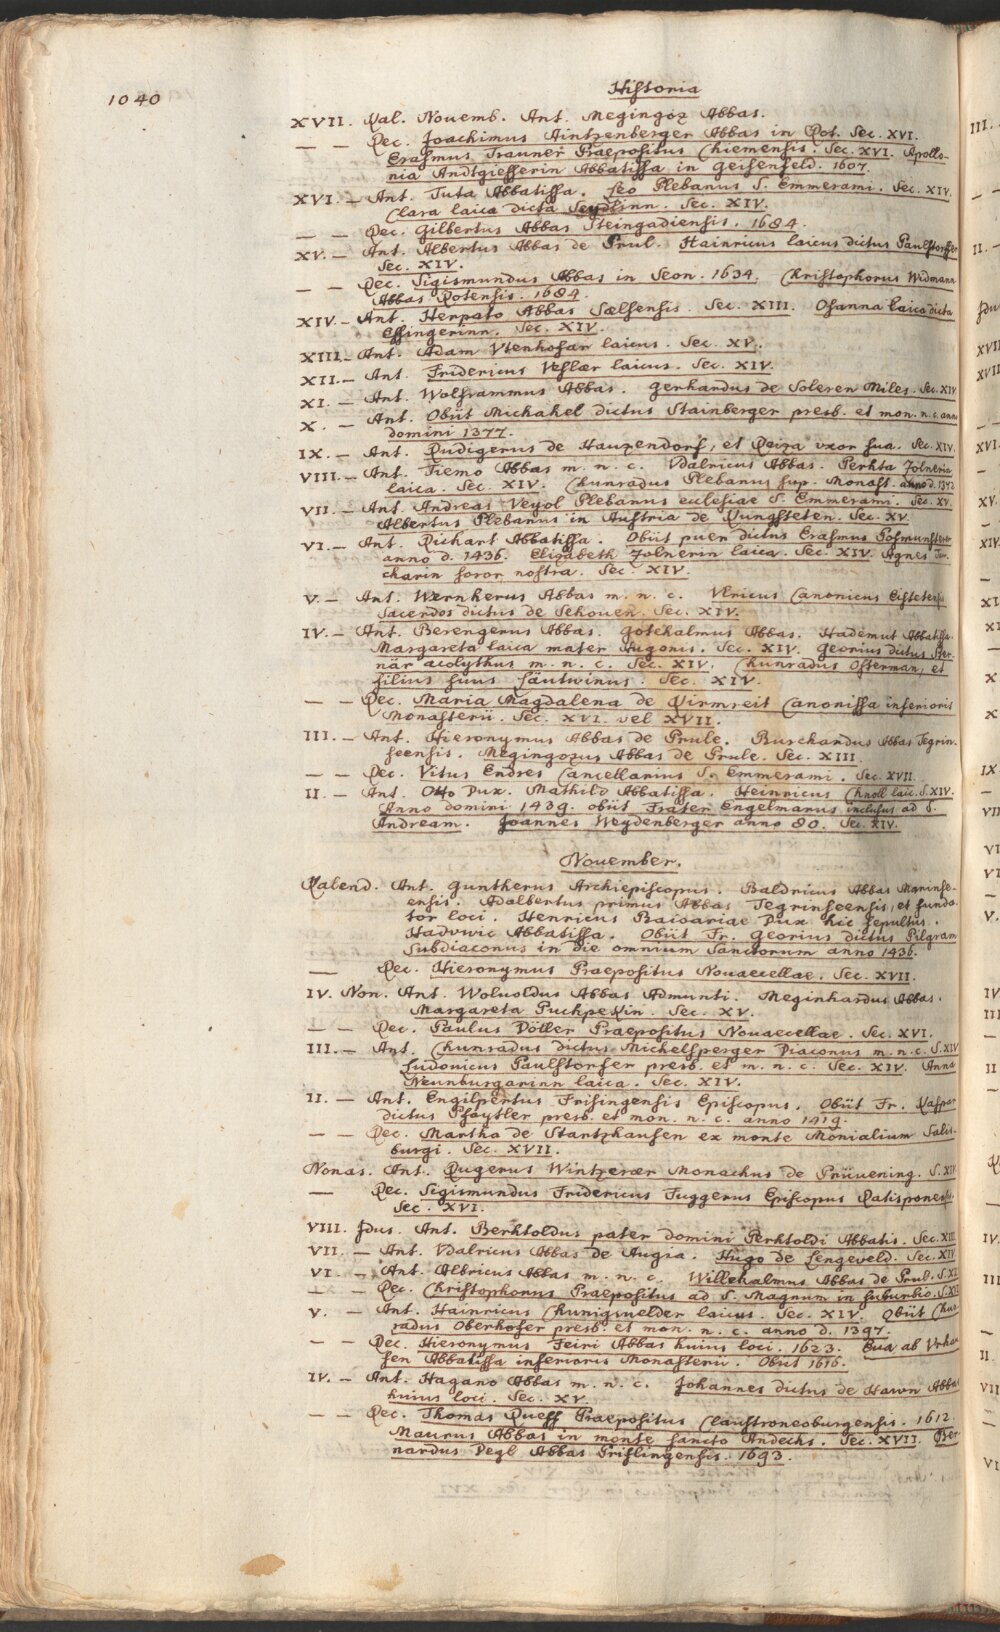 1040
Historia
XVII. Kal. Novemb. Ant. Megingoz Abbas.
— — Rec. Joachimus Aintzenberger Abbas in Rot. Sec. XVI.
Erasmus Trauner Praepositus Chiemensis. Sec. XVI. Apollo-
nia Andtgiesserin Abbatissa in Geisenfeld. 1607.
XVI. — Ant. Tuta Abbatissa. Leo Plebanus S. Emmerami. Sec. XIV.
Clara laica dicta Seydlinn. Sec. XIV.
— — Rec. Gilbertus Abbas Steingadiensis. 1684.
XV. — Ant. Albertus Abbas de Prul. Hainricus laicus dictus Paulstorffer
Sec. XIV.
— — Rec. Sigismundus Abbas in Seon. 1634. Christophorus Widmann
Abbas Rotensis. 1684.
XIV. — Ant. Herpato Abbas Sælsensis. Sec. XIII. Osanna laica dicta
Essingerinn. Sec. XIV.
XIII. — Ant. Adam Vtenhofar laicus. Sec. XV.
XII. — Ant. Fridericus Veslær laicus. Sec. XIV.
XI. — Ant. Wolframmus Abbas. Gerhardus de Soleren Miles. Sec. XIV
X. — Ant. Obiit Michahel dictus Stainberger presb. et mon. n. c. anno
domini 1377.
IX. — Ant. Rudigerus de Hauzendorf, et Reiza vxor sua. Sec. XIV.
VIII. — Ant. Tiemo Abbas m. n. c. Vdalricus Abbas. Perhta Zolnerin
laica. Sec. XIV. Chunradus Plebanus sup. Monast. anno d. 1342
VII. — Ant. Andreas Veyol Plebanus ecclesiae S. Emmerami. Sec. XV.
Albertus Plebanus in Austria de Rungsteten. Sec. XV.
VI. — Ant. Richart Abbatissa. Obiit puer dictus Erasmus Posmunsterer
anno d. 1436. Elizabeth Zolnerin laica. Sec. XIV. Agnes
charin soror nostra. Sec. XIV.
V. — Ant. Wernherus Abbas m. n. c. Vlricus Canonicus Eistetensis
Sacerdos dictus de Schouen. Sec. XIV.
IV. — Ant. Berengerus Abbas. Gotchalmus Abbas. Hademut Abbatissa.
Margareta laica mater Hugonis. Sec. XIV. Georius dictus Ster-
när acolythus m. n. c. Sec. XIV. Chunradus Osterman, et
filius suus Läutwinus. Sec. XIV.
— — Rec. Maria Magdalena de Virmreit Canonissa inferioris
Monasterii. Sec. XVI. vel XVII.
III. — Ant. Hieronymus Abbas de Prule. Burchardus Abbas Tegrin-
seensis. Megingozus Abbas de Prule. Sec. XIII.
— — Rec. Vitus Endres Cancellarius S. Emmerami. Sec. XVII.
II. — Ant. Otto Dux. Mathild Abbatissa. Heinricus Chnoll laic. S. XIV.
Anno domini 1439. obiit Frater Engelmarus inclusus ad S.
Andream. Joannes Weydenberger anno 80. Sec. XIV.
November.
Kalend. Ant. Guntherus Archiepiscopus. Baldricus Abbas Mgrinse-
ensis. Adalbertus primus Abbas Tegrinseensis, et funda-
tor loci. Henricus Baioariae Dux hic sepultus.
Hadvwic Abbatissa. Obiit Fr. Georius dictus Pilgram
Subdiaconus in die omnium Sanctorum anno 1436.
— Rec. Hieronymus Praepositus Novaecellae. Sec. XVII.
IV. Non. Ant. Wolvoldus Abbas Admunti. Meginhardus Abbas.
Margareta Puchpekin. Sec. XV.
— — Rec. Paulus Döller Praepositus Novaecellae. Sec. XVI.
III. — Ant. Chunradus dictus Michelsperger Diaconus m. n. c. S. XIV
Ludovicus Paulstorfer presb. et m. n. c. Sec. XIV. Anna
Neunburgarinn laica. Sec. XIV.
II. — Ant. Engilpertus Frisingensis Episcopus. Obiit Fr. Kaspar
dictus Pfäytler presb. et mon. n. c. anno 1419.
— — Rec. Martha de Startzhausen ex monte Monialium Salis-
burgi. Sec. XVII.
Nonas. Ant. Rugerus Wintzerær Monachus de Prüvening. S. XIV
— Rec. Sigismundus Fridericus Fuggerus Episcopus Ratisponensis.
Sec. XVI.
VIII. Idus. Ant. Berhtoldus pater domini Perhtoldi Abbatis. Sec. XIII
VII. — Ant. Vdalricus Abbas de Augia. Hugo de Lengeveld. Sec. XIV
VI. — Ant. Albricus Abbas m. n. c. Willehalmus Abbas de Prul. S. XI
— — Rec. Christophorus Praepositus ad S. Magnum in suburbio. S. XVI
V. — Ant. Hainricus Chunigsvelder laicus. Sec. XIV. Obiit Chun-
radus Oberhofer presb. et mon. n. c. anno d. 1397.
— — Rec. Hieronymus Feiri Abbas huius loci. 1623. Eua ab Vrhau
sen Abbatissa inferioris Monasterii. Obiit 1616.
IV. — Ant. Hagano Abbas m. n. c. Johannes dictus de Hawn Abbas
huius loci. Sec. XV.
— — Rec. Thomas Rueff Praepositus Claustroneoburgensis. 1612.
Maurus Abbas in monte sancto Andechs. Sec. XVII. Ber-
nardus Degl Abbas Priflingensis. 1693.